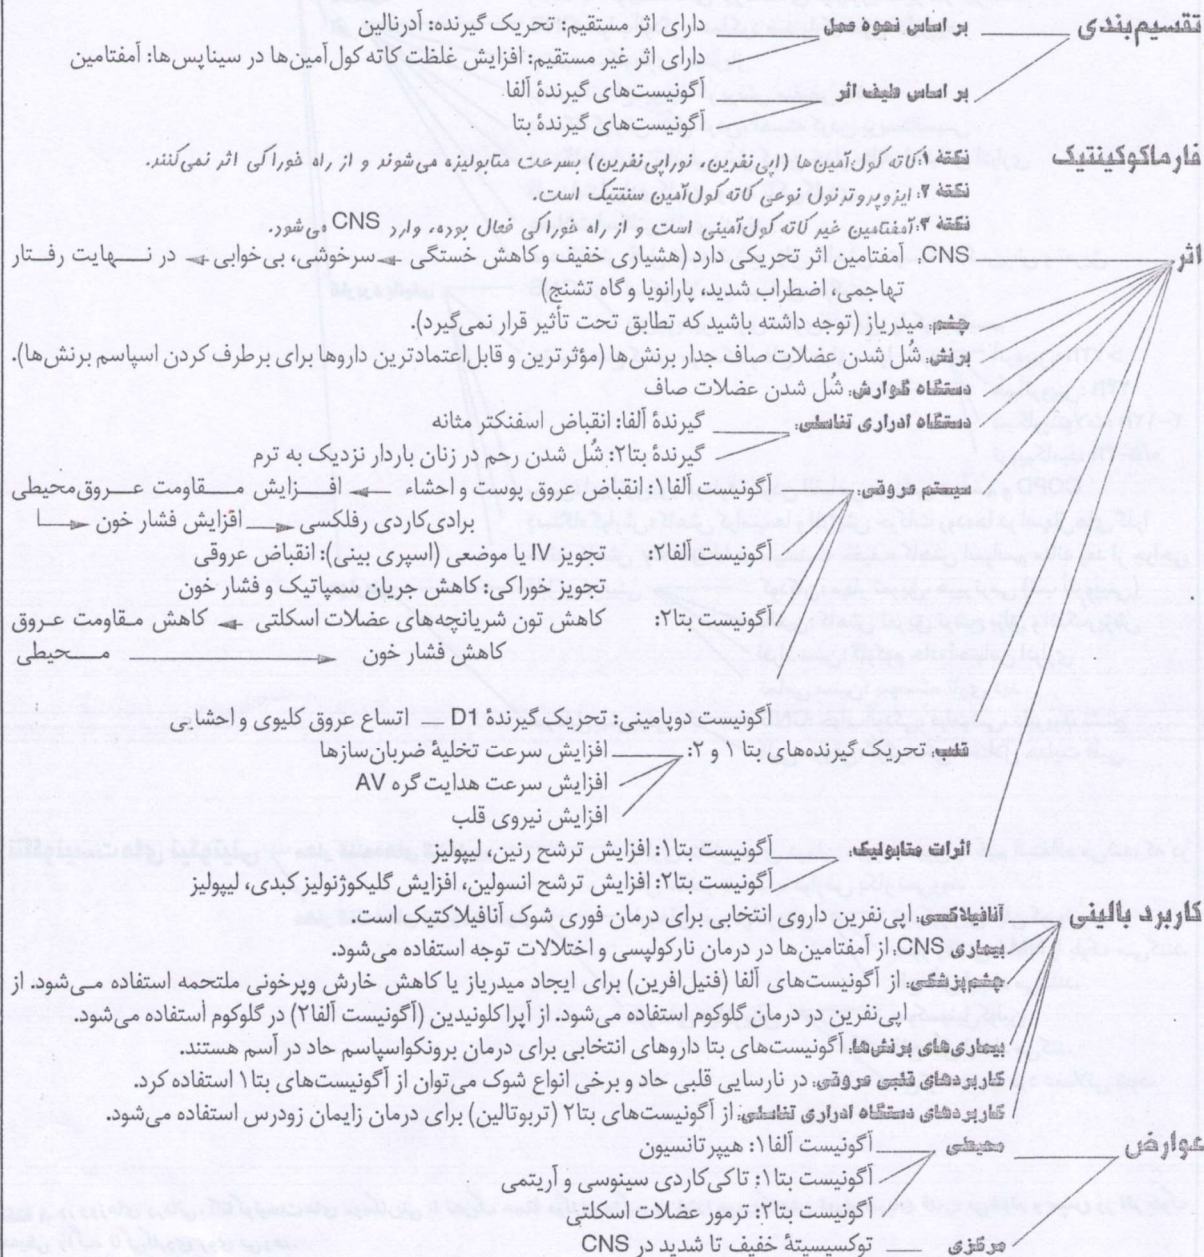 تقسیم‌بندی بر اساس نحوه عمل دارای اثر مستقیم: تحریک گیرنده: آدرنالین
دارای اثر غیر مستقیم: افزایش غلظت کاته کول‌آمین‌ها در سیناپس‌ها: آمفتامین
بر اساس طیف اثر آگونیست‌های گیرندهٔ آلفا
آگونیست‌های گیرندهٔ بتا
فارماکوکینتیک نکتهٔ ۱: کاته کول‌آمین‌ها (اپی‌نفرین، نوراپی‌نفرین) بسرعت متابولیزه می‌شوند و از راه خوراکی اثر نمی‌کنند.
نکتهٔ ۲: ایزوپروترنول نوعی کاته کول‌آمین سنتتیک است.
نکتهٔ ۳: آمفتامین غیر کاته کول‌آمینی است و از راه خوراکی فعال بوده، وارد CNS می‌شود.
اثر CNS. آمفتامین اثر تحریکی دارد (هشیاری خفیف و کاهش خستگی ← سرخوشی، بی‌خوابی ← در نـهایت رفـتار
تهاجمی، اضطراب شدید، پارانویا و گاه تشنج)
چشم: میدریاز (توجه داشته باشید که تطابق تحت تأثیر قرار نمی‌گیرد).
برنش. شُل شدن عضلات صاف جدار برنش‌ها (مؤثرترین و قابل‌اعتمادترین داروها برای برطرف کردن اسپاسم برنش‌ها).
دستگاه گوارش. شل شدن عضلات صاف
دستگاه ادراری تناسلی. گیرندهٔ آلفا: انقباض اسفنکتر مثانه
گیرندهٔ بتا۲: شُل شدن رحم در زنان باردار نزدیک به ترم
سیستم عروقی. آگونیست آلفا۱: انقباض عروق پوست و احشاء ← افـزایش مـقاومت عـروق‌محیطی
← افزایش فشار خون ← برادی‌کاردی رفلکسی
آگونیست آلفا۲: تجویز IV یا موضعی (اسپری بینی): انقباض عروقی
تجویز خوراکی: کاهش جریان سمپاتیک و فشار خون
آگونیست بتا۲: کاهش تون شریانچه‌های عضلات اسکلتی ← کاهش مـقاومت عـروق
مـحیطی ← کاهش فشار خون
آگونیست دوپامینی: تحریک گیرندهٔ D1 ← اتساع عروق کلیوی و احشایی
قلب. تحریک گیرنده‌های بتا ۱ و ۲: افزایش سرعت تخلیهٔ ضربان‌سازها
افزایش سرعت هدایت گره AV
افزایش نیروی قلب
اثرات متابولیک. آگونیست بتا۱: افزایش ترشح رنین، لیپولیز
آگونیست بتا۲: افزایش ترشح انسولین، افزایش گلیکوژنولیز کبدی، لیپولیز
کاربرد بالینی آنافیلاکسی. اپی‌نفرین داروی انتخابی برای درمان فوری شوک آنافیلاکتیک است.
بیماری CNS. از آمفتامین‌ها در درمان نارکولپسی و اختلالات توجه استفاده می‌شود.
چشم‌پزشکی. از آگونیست‌های آلفا (فنیل‌افرین) برای ایجاد میدریاز یا کاهش خارش وپرخونی ملتحمه استفاده مـی‌شود. از
اپی‌نفرین در درمان گلوکوم استفاده می‌شود. از آپراکلونیدین (آگونیست آلفا۲) در گلوکوم استفاده می‌شود.
بیماری‌های برنش‌ها. آگونیست‌های بتا داروهای انتخابی برای درمان برونکواسپاسم حاد در آسم هستند.
کاربردهای قلبی عروقی. در نارسایی قلبی حاد و برخی انواع شوک می‌توان از آگونیست‌های بتا۱ استفاده کرد.
کاربردهای دستگاه ادراری تناسلی. از آگونیست‌های بتا۲ (تربوتالین) برای درمان زایمان زودرس استفاده می‌شود.
عوارض محیطی آگونیست آلفا۱: هیپرتانسیون
آگونیست بتا۱: تاکی‌کاردی سینوسی و آریتمی
آگونیست بتا۲: ترمور عضلات اسکلتی
مرکزی توکسیسیتهٔ خفیف تا شدید در CNS